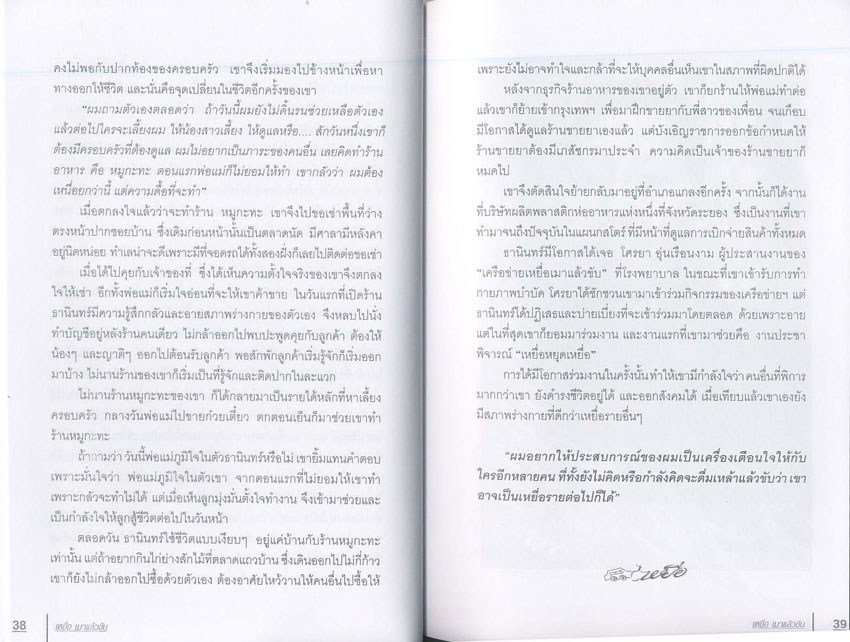 คงไม่พอกับปากท้องของครอบครัว เขาจึงเริ่มมองไปข้างหน้าเพื่อหา
ทางออกให้ชีวิต และนั่นคือจุดเปลี่ยนในชีวิตอีกครั้งของเขา
“ผมถามตัวเองตลอดว่า ถ้าวันนี้ผมยังไม่ดิ้นรนช่วยเหลือตัวเอง
แล้วต่อไปใครจะเลี้ยงผม ให้น้องสาวเลี้ยง ให้ดูแลหรือ.... สักวันหนึ่งเขาก็
ต้องมีครอบครัวที่ต้องดูแล ผมไม่อยากเป็นภาระของคนอื่น เลยคิดทำร้าน
อาหาร คือ หมูกะทะ ตอนแรกพ่อแม่ก็ไม่ยอมให้ทำ เขากลัวว่า ผมต้อง
เหนื่อยกว่านี้ แต่ความดื้อที่จะทำ”
เมื่อตกลงใจแล้วว่าจะทำร้าน หมูกะทะ เขาจึงไปขอเช่าพื้นที่ว่าง
ตรงหน้าปากซอยบ้าน ซึ่งเดิมก่อนหน้านั้นเป็นตลาดนัด มีศาลามีหลังคา
อยู่นิดหน่อย ทำเลน่าจะดีเพราะมีที่จอดรถได้ทั้งสองฝั่งก็เลยไปติดต่อขอเช่า
เมื่อได้ไปคุยกับเจ้าของที่ ซึ่งได้เห็นความตั้งใจจริงของเขาจึงตกลง
ให้ให้เช่า อีกทั้งพ่อแม่ก็เริ่มใจอ่อนที่จะให้เขาค้าขาย ในวันแรกที่เปิดร้าน
ธานินทร์มีความรู้สึกกลัวและอายสภาพร่างกายของตัวเอง จึงหลบไปนั่ง
ทำบัญชีอยู่หลังร้านคนเดียว ไม่กล้าออกไปพบปะพูดคุยกับลูกค้า ต้องให้
น้องๆ และญาติๆ ออกไปต้อนรับลูกค้า พอสักพักลูกค้าเริ่มรู้จักก็เริ่มออก
มาบ้าง ไม่นานร้านของเขาก็เริ่มเป็นที่รู้จักและติดปากในละแวก
ไม่นานร้านหมูกะทะของเขา ก็ได้กลายมาเป็นรายได้หลักที่หาเลี้ยง
ครอบครัว กลางวันพ่อแม่ไปขายก๋วยเตี๋ยว ตกตอนเย็นก็มาช่วยเขาทำ
ร้านหมูกะทะ
ถ้าถามว่า วันนี้พ่อแม่ภูมิใจในตัวธานินทร์หรือไม่ เขายิ้มแทนคำตอบ
เพราะมั่นใจว่า พ่อแม่ภูมิใจในตัวเขา จากตอนแรกที่ไม่ยอมให้เขาทำ
เพราะกลัวจะทำไม่ได้ แต่เมื่อเห็นลูกมุ่งมั่นตั้งใจทำงาน จึงเข้ามาช่วยและ
เป็นกำลังใจให้ลูกสู้ชีวิตต่อไปในวันหน้า
ตลอดวัน ธานินทร์ใช้ชีวิตแบบเงียบๆ อยู่แค่บ้านกับร้านหมูกะทะ
เท่านั้น แต่ถ้าอยากกินไก่ย่างสักไม้ที่ตลาดแถวบ้าน ซึ่งเดินออกไปไม่กี่ก้าว
เขาก็ยังไม่กล้าออกไปซื้อด้วยตัวเอง ต้องอาศัยไหว้วานให้คนอื่นไปซื้อให้
38 เหยื่อ เมาแล้วขับ
เพราะยังไม่อาจทำใจและกล้าที่จะให้บุคคลอื่นเห็นเขาในสภาพที่ผิดปกติได้
หลังจากธุรกิจร้านอาหารของเขาอยู่ตัว เขาก็ยกร้านให้พ่อแม่ทำต่อ
แล้วเขาก็ย้ายเข้ากรุงเทพฯ เพื่อมาฝึกขายยากับพี่สาวของเพื่อน จนเกือบ
มีโอกาสได้ดูแลร้านขายยาเองแล้ว แต่บังเอิญราชการออกข้อกำหนดให้
ร้านขายยาต้องมีเภสัชกรมาประจำ ความคิดเป็นเจ้าของร้านขายยาก็
หมดไป
เขาจึงตัดสินใจย้ายกลับมาอยู่ที่อำเภอแกลงอีกครั้ง จากนั้นก็ได้งาน
ที่บริษัทผลิตพลาสติกห่ออาหารแห่งหนึ่งที่จังหวัดระยอง ซึ่งเป็นงานที่เขา
ทำมาจนถึงปัจจุบันในแผนกสโตร์ ที่มีหน้าที่ดูแลการเบิกจ่ายสินค้าทั้งหมด
ธานินทร์มีโอกาสได้เจอ โศรยา อุ่นเรือนงาม ผู้ประสานงานของ
“เครือข่ายเหยื่อเมาแล้วขับ” ที่โรงพยาบาล ในขณะที่เขาเข้ารับการทำ
กายภาพบำบัด โศรยาได้ชักชวนเขามาเข้าร่วมกิจกรรมของเครือข่ายฯ แต่
ธานินทร์ได้ปฏิเสธและบ่ายเบี่ยงที่จะเข้าร่วมมาโดยตลอด ด้วยเพราะอาย
แต่ในที่สุดเขาก็ยอมมาร่วมงาน และงานแรกที่เขามาช่วยคือ งานประชา
พิจารณ์ “เหยื่อหยุดเหยื่อ”
การได้มีโอกาสร่วมงานในครั้งนั้น ทำให้เขามีกำลังใจว่า คนอื่นที่พิการ
มากกว่าเขา ยังดำรงชีวิตอยู่ได้ และออกสังคมได้ เมื่อเทียบแล้วเขาเองยัง
มีสภาพร่างกายที่ดีกว่าเหยื่อรายอื่นๆ
“ผมอยากให้ประสบการณ์ของผมเป็นเครื่องเตือนใจให้กับ
ใครอีกหลายคน ที่ทั้งยังไม่คิดหรือกำลังคิดจะดื่มเหล้าแล้วขับว่า เขา
อาจเป็นเหยื่อรายต่อไปก็ได้”
เหยื่อ
เหยื่อ เมาแล้วขับ 39